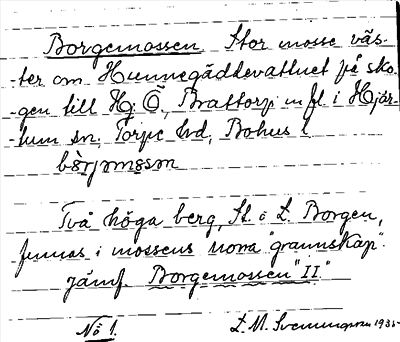 Borgemossen Stor mosse väs-
-ter om Hunnegäddevattnet på sko-
-gen till Hj. Ö, Brattorp m fl i Hjär-
-tum sn, Torpe hd, Bohus l
Två höga berg, St. o L. Borgen,
finnas i mossens norra "grannskap".
jämf. Borgemossen "II."
No 1. L. M. Svenungsson 1935